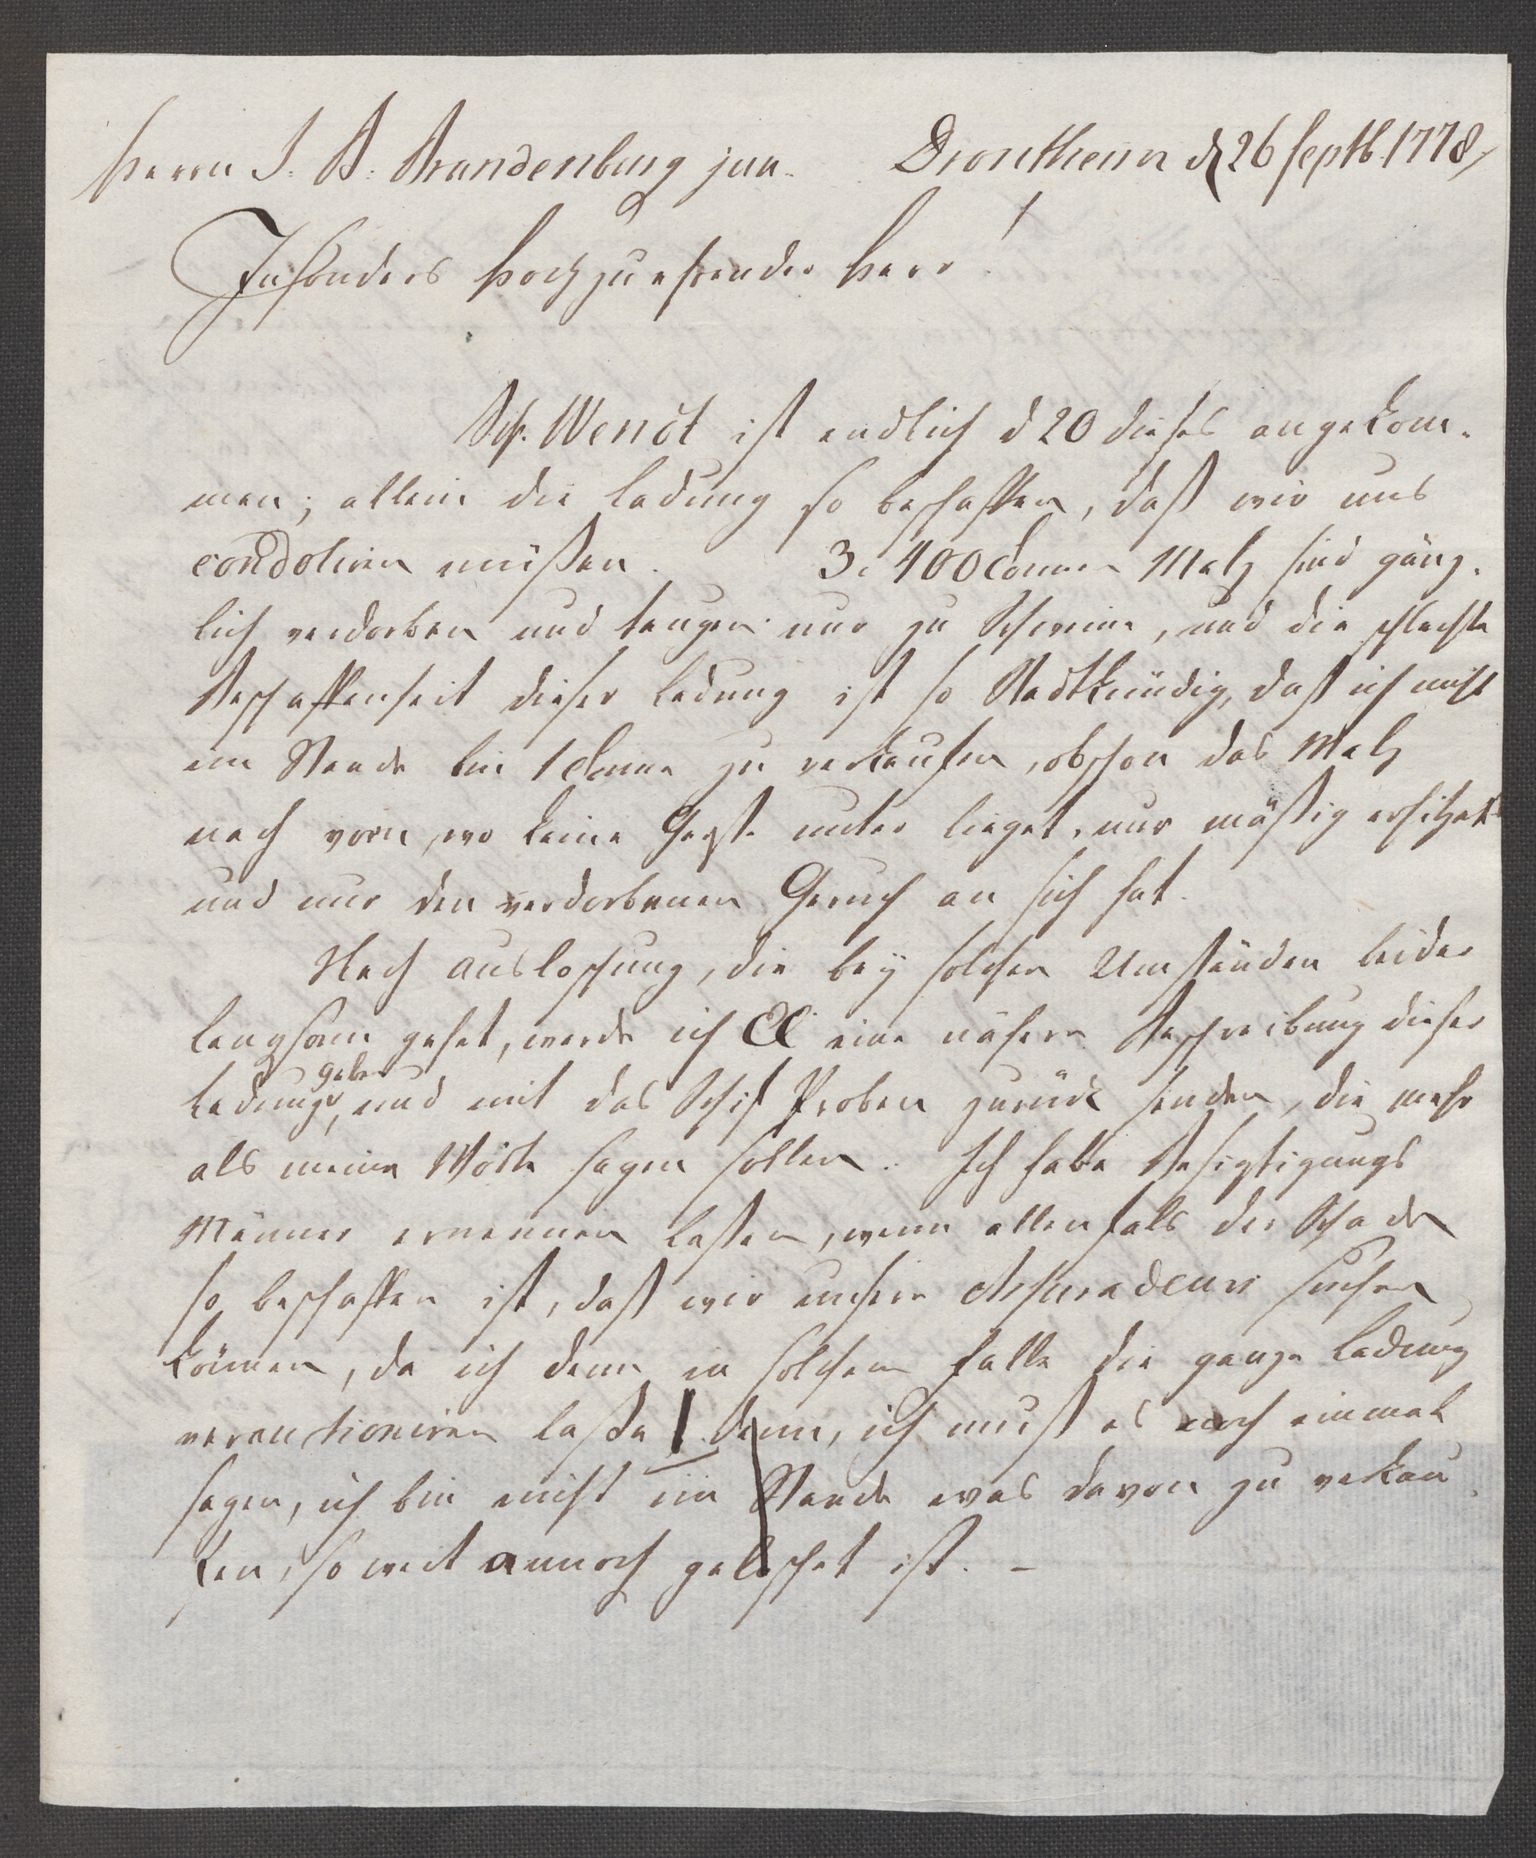 Herrn J. B. Brandenburg jun. Drontheim d 26 Septb. 1778,
Insonders Hochzuehrender Herr!
Schf. Wendt ist endlich d 20 dieses angekom-
men; allein die Ladung so beschaffen, daß wir uns
condoliren müßen. 3 a 400 Tonnen Maltz sind gänz-
lich verdorben und taugen nur zu Schweine, und die schlechte
Beschaffenheit dieser Ladung ist so Stadtkündig, daß ich nicht
im Stande bin 1 Tonne zu verkaufen, obschon das Maltz
nach vorn, wo keine Gerste unter lieget, nur mäßig erhitzet
und nur den verdorbenen Geruch an sich hat.
Nach Auslossung, die bey solchen Umständen leider
langsam gehet, werde ich EE eine nähere Beschreibung dieser
Ladung geben, und mit das Schif Proben zurück senden, die mehr
als meine Wörte sagen sollen. Ich habe Besigtigungs
Männer ernennen laßen, wenn allenfals der Schaden
so beschaffen ist, daß wir unsere Assuradeurs suchen
können, da ich denn in solchem Falle die ganze Ladung
verauctioniren laße denn, ich muß es noch einmal
sagen, ich bin nicht im Stande was davon zu verkau
fen, so weit annoch geloschet ist. –